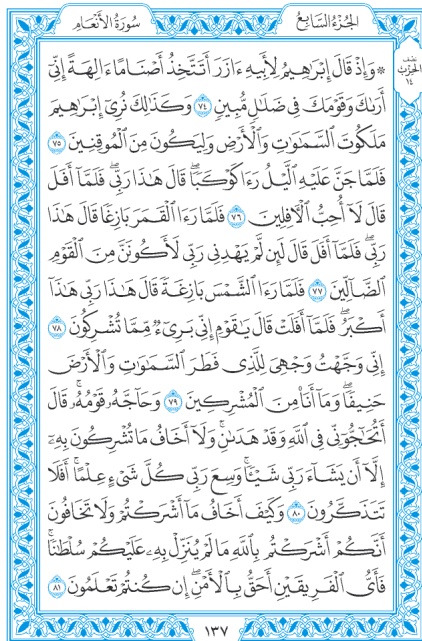 الجُزْءُ السَّابِعُ
سُورَةُ الأَنْعَام
نصف
الحزب
١٤
۞ وَإِذْ قَالَ إِبْرَٰهِيمُ لِأَبِيهِ ءَازَرَ أَتَتَّخِذُ أَصْنَامًا ءَالِهَةً إِنِّىٓ
أَرَىٰكَ وَقَوْمَكَ فِى ضَلَٰلٍ مُّبِينٍ ٧٤ وَكَذَٰلِكَ نُرِىٓ إِبْرَٰهِيمَ
مَلَكُوتَ السَّمَٰوَٰتِ وَالْأَرْضِ وَلِيَكُونَ مِنَ الْمُوقِنِينَ ٧٥
فَلَمَّا جَنَّ عَلَيْهِ الَّيْلُ رَءَا كَوْكَبًا قَالَ هَٰذَا رَبِّى فَلَمَّآ أَفَلَ
قَالَ لَآ أُحِبُّ الْءَافِلِينَ ٧٦ فَلَمَّا رَءَا الْقَمَرَ بَازِغًا قَالَ هَٰذَا
رَبِّى فَلَمَّآ أَفَلَ قَالَ لَئِن لَّمْ يَهْدِنِى رَبِّى لَأَكُونَنَّ مِنَ الْقَوْمِ
الضَّآلِّينَ ٧٧ فَلَمَّا رَءَا الشَّمْسَ بَازِغَةً قَالَ هَٰذَا رَبِّى هَٰذَآ
أَكْبَرُ فَلَمَّآ أَفَلَتْ قَالَ يَٰقَوْمِ إِنِّى بَرِىٓءٌ مِّمَّا تُشْرِكُونَ ٧٨
إِنِّى وَجَّهْتُ وَجْهِىَ لِلَّذِى فَطَرَ السَّمَٰوَٰتِ وَالْأَرْضَ
حَنِيفًا وَمَآ أَنَا۠ مِنَ الْمُشْرِكِينَ ٧٩ وَحَآجَّهُۥ قَوْمُهُۥ قَالَ
أَتُحَٰٓجُّوٓنِّى فِى اللَّهِ وَقَدْ هَدَىٰنِ وَلَآ أَخَافُ مَا تُشْرِكُونَ بِهِۦٓ
إِلَّآ أَن يَشَآءَ رَبِّى شَيْـًٔا وَسِعَ رَبِّى كُلَّ شَىْءٍ عِلْمًا أَفَلَا
تَتَذَكَّرُونَ ٨٠ وَكَيْفَ أَخَافُ مَآ أَشْرَكْتُمْ وَلَا تَخَافُونَ
أَنَّكُمْ أَشْرَكْتُم بِاللَّهِ مَا لَمْ يُنَزِّلْ بِهِۦ عَلَيْكُمْ سُلْطَٰنًا
فَأَىُّ الْفَرِيقَيْنِ أَحَقُّ بِالْأَمْنِ إِن كُنتُمْ تَعْلَمُونَ ٨١
١٣٧